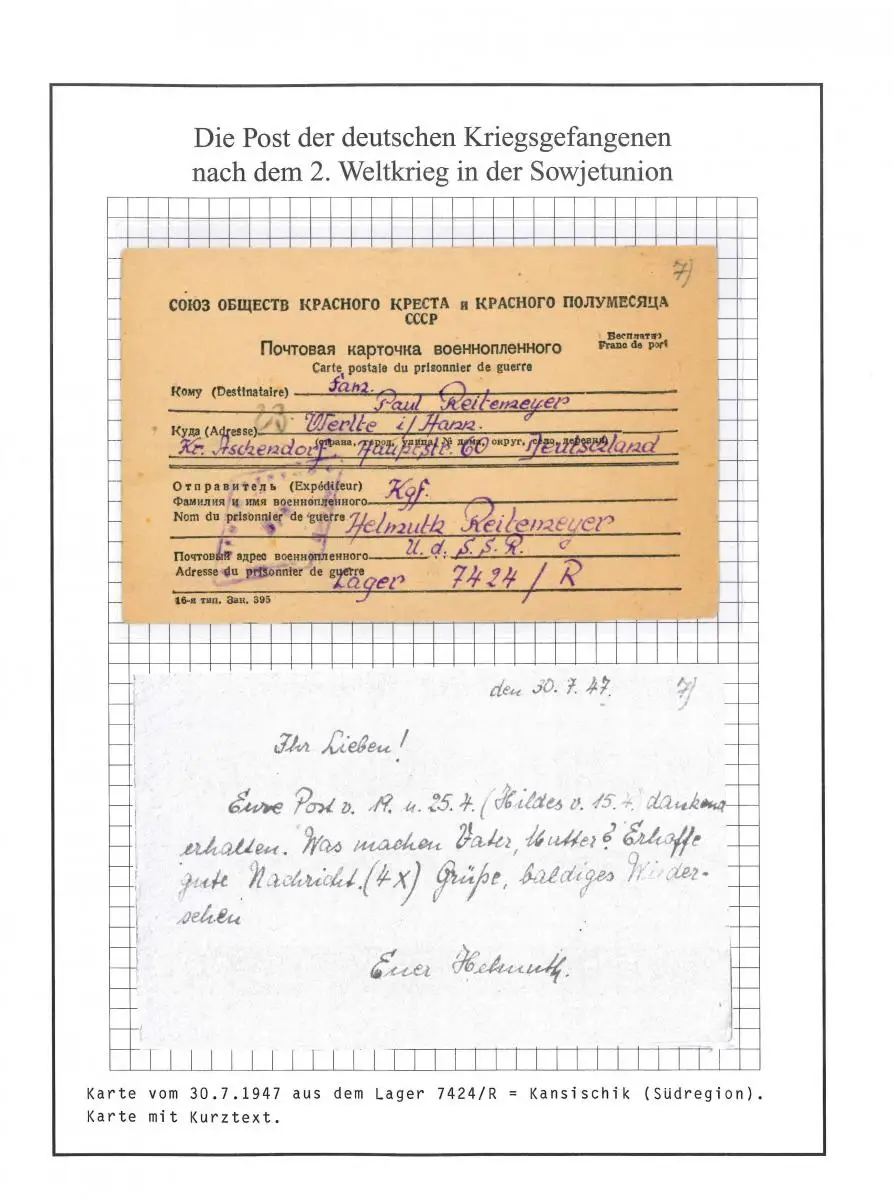 Die Post der deutschen Kriegsgefangenen
nach dem 2. Weltkrieg in der Sowjetunion
7)
СОЮЗ ОБЩЕСТВ КРАСНОГО КРЕСТА и КРАСНОГО ПОЛУМЕСЯЦА
СССР
Бесплатно
Почтовая карточка военнопленного
Franc de port
Carte postale du prisonnier de guerre
Кому (Destinataire) Fam.
Paul Reitemeyer
23
Куда (Adresse) Werlte i/Hann.
(страна, город, улица, № дома, округ, село, деревня)
Kr. Aschendorf, Hauptstr. 60 Deutschland
Отправитель (Expéditeur) Kgf.
Фамилия и имя военнопленного
Nom du prisonnier de guerre Helmuth Reitemeyer
Почтовый адрес военнопленного U.d.S.S.R.
Adresse du prisonnier de guerre Lager 7424/R
16-я тип. Зак. 395
den 30.7.47. 7)
Ihr Lieben!
Eure Post v. 19. u. 25.4. (Hildes v. 15.4.) dankend
erhalten. Was machen Vater, Mutter? Erhoffe
gute Nachricht. (4x) Grüße, baldiges Wieder-
sehen
Euer Helmuth.
Karte vom 30.7.1947 aus dem Lager 7424/R = Kansischik (Südregion).
Karte mit Kurztext.